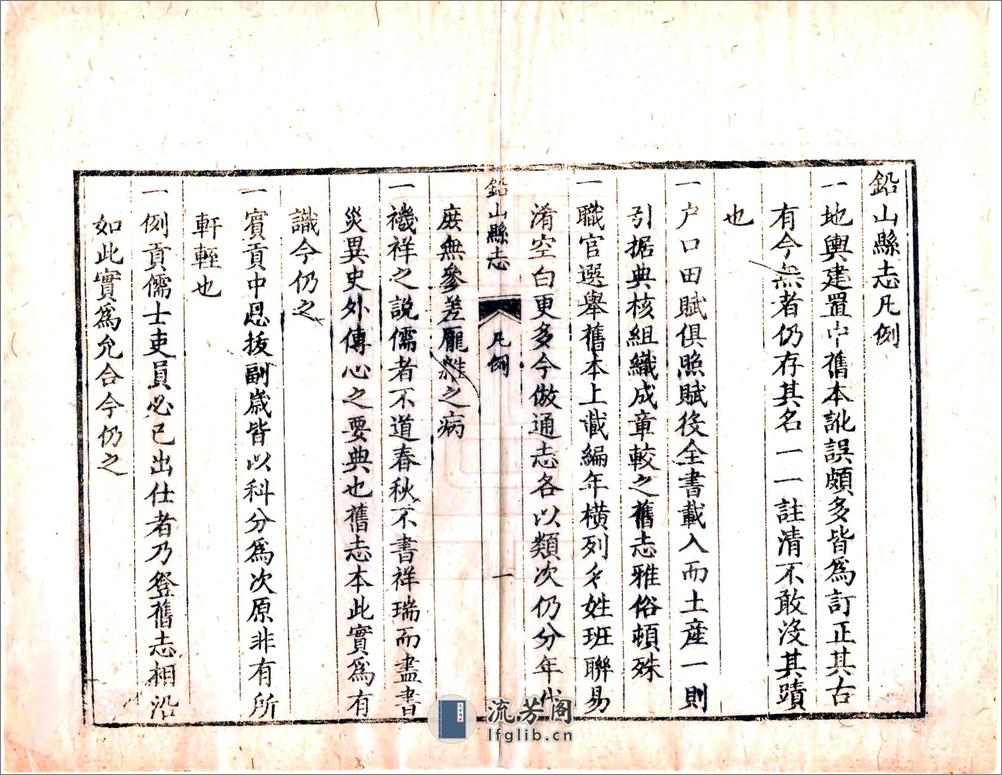 鉛山縣志凡例
一地輿建置中舊本訛誤頗多皆爲訂正其古
有今無者仍存其名一一註清不敢沒其蹟
也
一户口田賦俱照賦後全書載入而土産一則
引据典核組織成章較之舊志雅俗頓殊
一職官選舉舊本上載編年横列名姓班聯易
淆空白更多今倣通志各以類次仍分年代
鉛山縣志
凡例
一
庶無參差龎雜之病
一禨祥之説儒者不道春秋不書祥瑞而盡書
災異史外傳心之要典也舊志本此實爲有
識今仍之
一賓貢中恩拔副歳皆以科分爲次原非有所
軒輊也
一例貢儒士吏員必已出仕者乃登舊志相沿
如此實爲允合今仍之
流芳阁
lfglib.cn